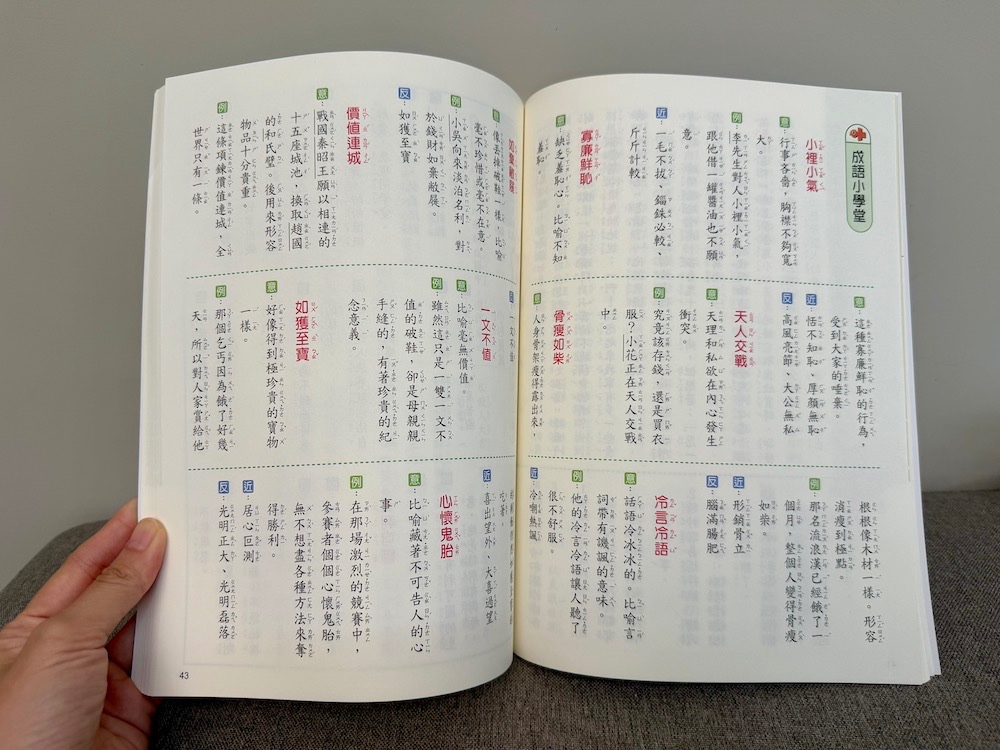 成語小學堂
小裡小氣
意：行事吝嗇，胸襟不夠寬
大。
例：李先生對人小裡小氣，
跟他借一罐醬油也不願
意。
近：一毛不拔、錙銖必較、
斤斤計較
寡廉鮮恥
意：缺乏羞恥心。比喻不知
羞恥。
意：這種寡廉鮮恥的行為，
受到大家的唾棄。
近：恬不知恥、厚顏無恥
反：高風亮節、大公無私
天人交戰
意：天理和私欲在內心發生
衝突。
例：究竟該存錢，還是買衣
服？小花正在天人交戰
中。
骨瘦如柴
意：人身骨架瘦得露出來，
根根像木材一樣。形容
消瘦到極點。
例：那名流浪漢已經餓了一
個月，整個人變得骨瘦
如柴。
近：形銷骨立
反：腦滿腸肥
冷言冷語
意：話語冷冰冰的。比喻言
詞帶有譏諷的意味。
例：他的冷言冷語讓人聽了
很不舒服。
近：冷嘲熱諷
意：像丟掉破鞋一樣，比喻
毫不珍惜或毫不在意。
例：小吳向來淡泊名利，對
於錢財如棄敝屣。
反：如獲至寶
價值連城
意：戰國秦昭王願以相連的
十五座城池，換取趙國
的和氏璧。後用來形容
物品十分貴重。
例：這條項鍊價值連城，全
世界只有一條。
一文不值
意：比喻毫無價值。
例：雖然這只是一雙一文不
值的破鞋，卻是母親親
手縫的，有著珍貴的紀
念意義。
如獲至寶
意：好像得到極珍貴的寶物
一樣。
例：那個乞丐因為餓了好幾
天，所以對人家賞給他
近：喜出望外、大喜過望
心懷鬼胎
意：比喻藏著不可告人的心
事。
例：在那場激烈的競賽中，
參賽者個個心懷鬼胎，
無不想盡各種方法來奪
得勝利。
近：居心叵測
反：光明正大、光明磊落
43